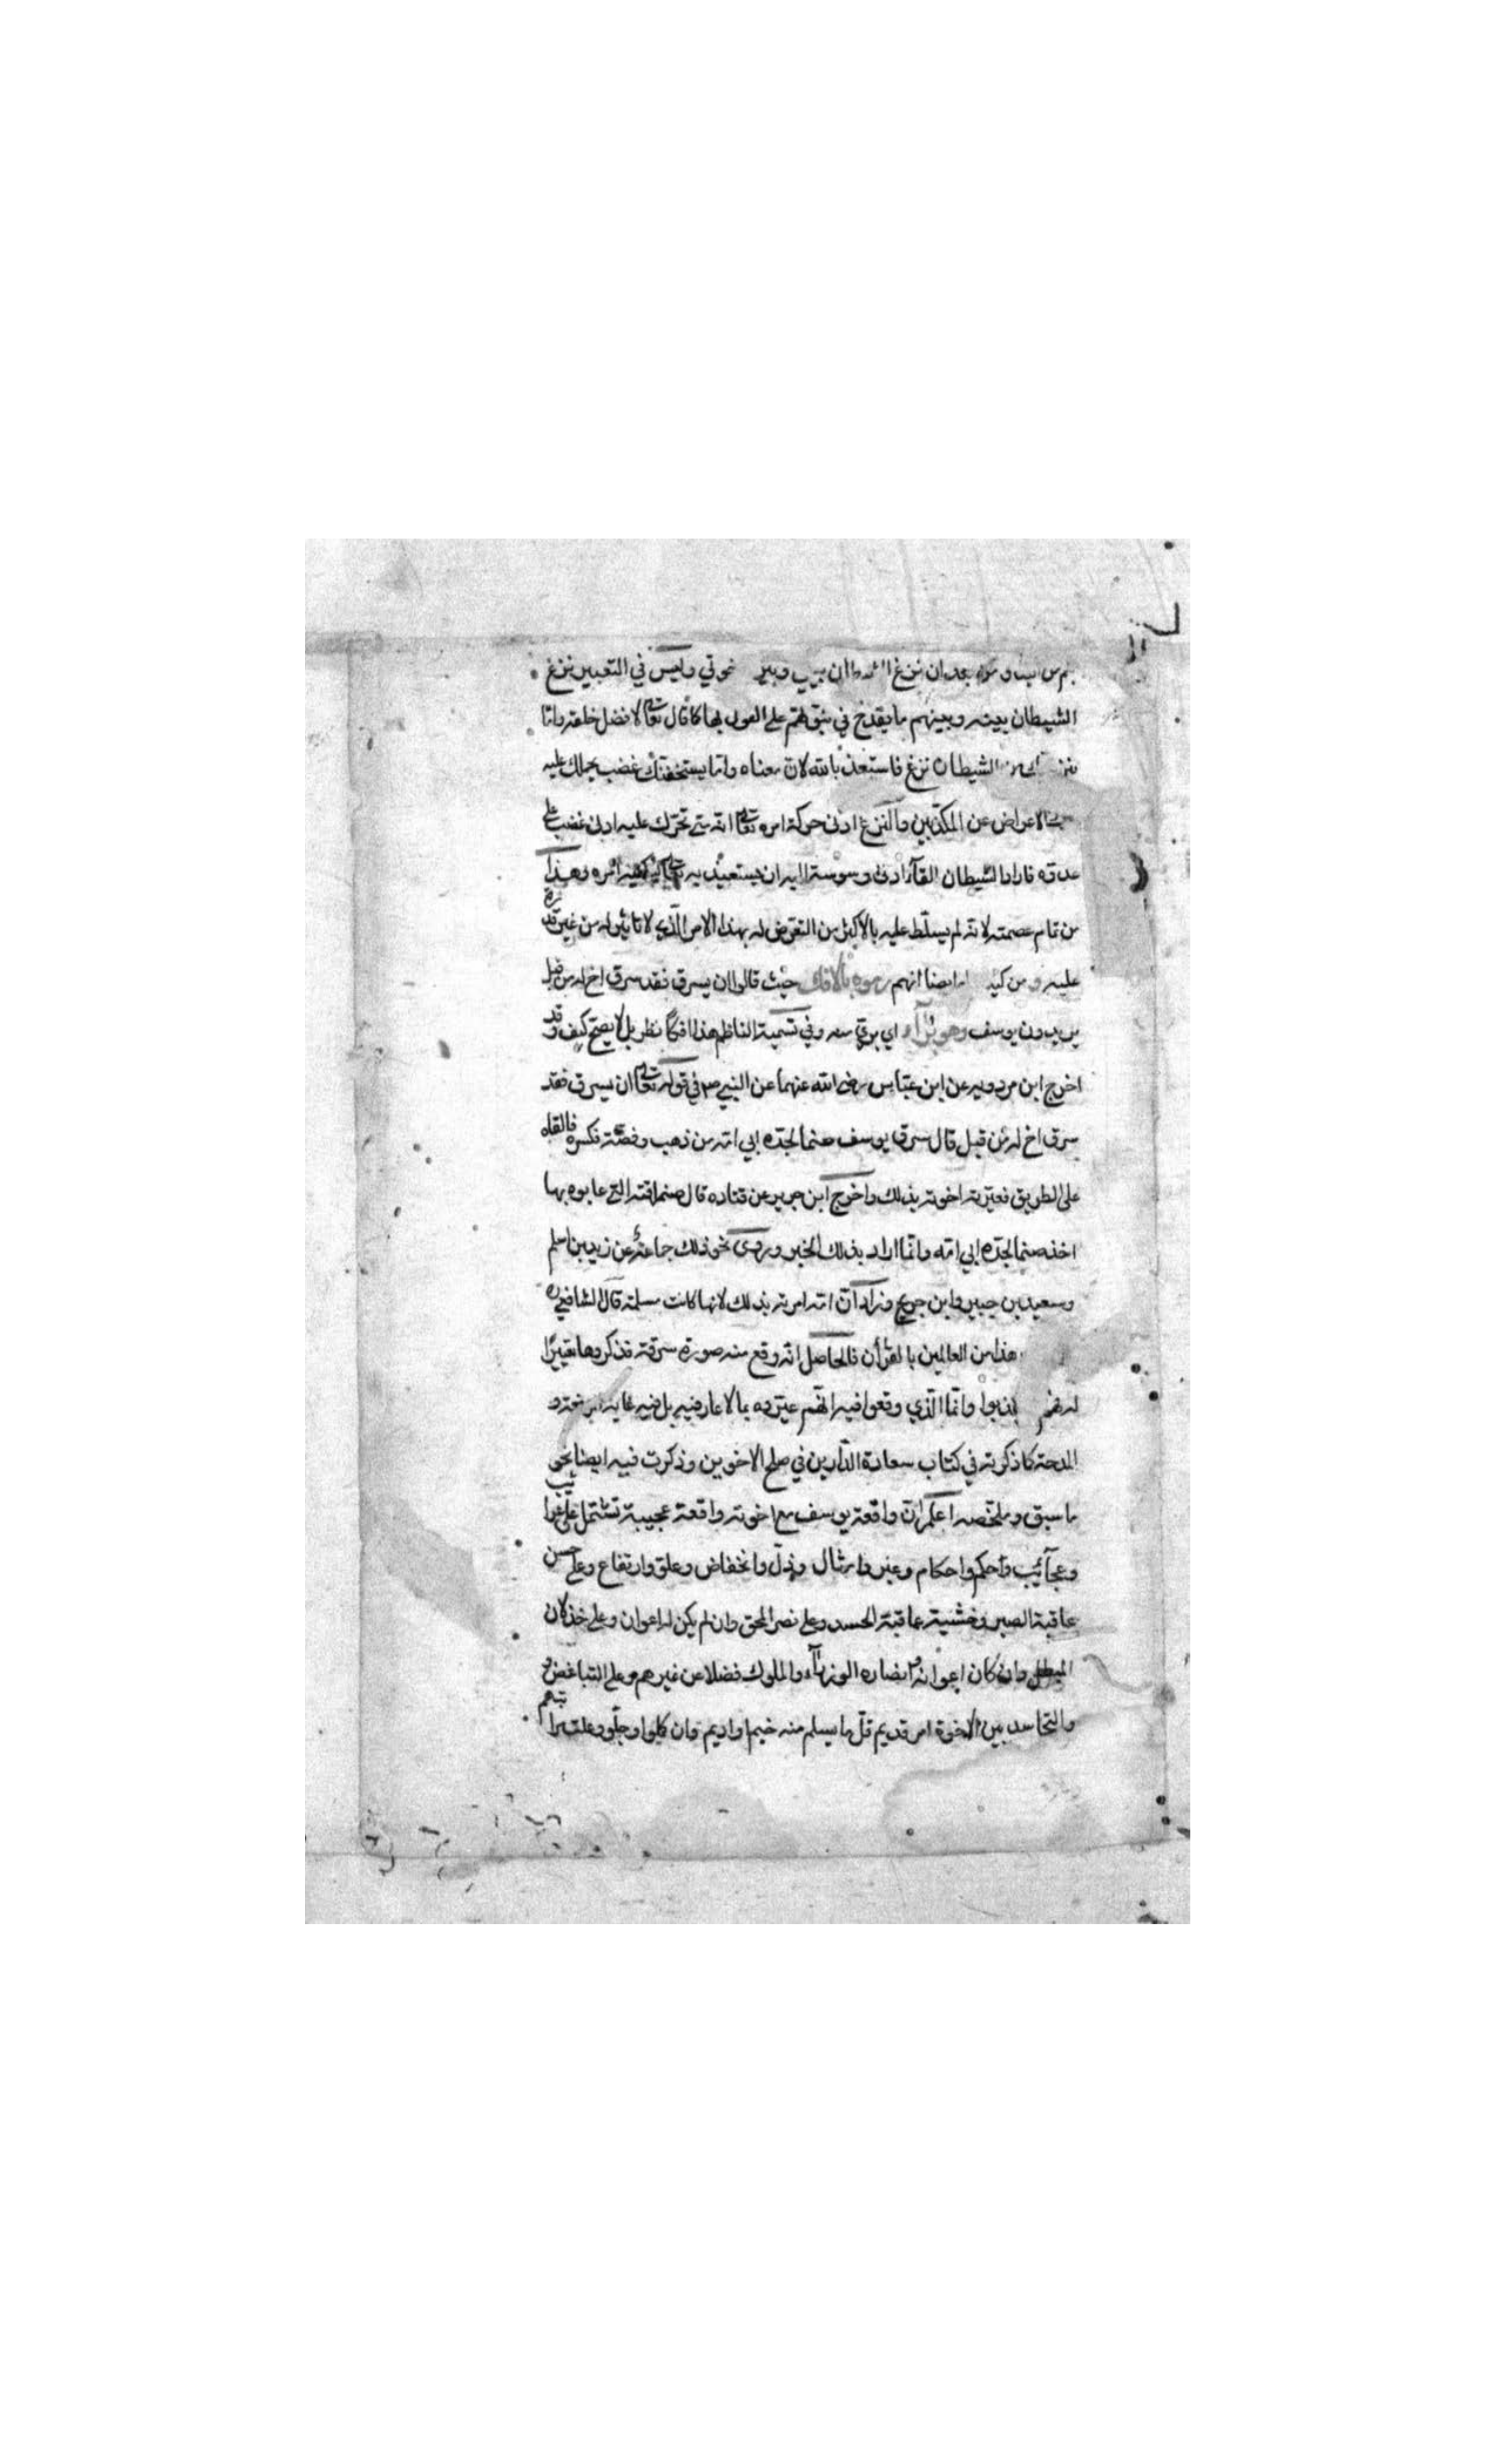 بعد ان نزغ الشيطان بيني وبين اخوتي وليس في التعبير بنزغ
الشيطان بينه وبينهم ما يقدح في نبوتهم على القول بها كما قال تعالى لافضل خلقه واما
ينزغنك من الشيطان نزغ فاستعذ بالله لان معناه واما يستخفنك غضب يحملك عليه
الاعراض عن المكذبين والنزغ ادنى حركة امره تعالى انه متى تحرك عليه ادنى غضب على
عدوه فاراد الشيطان القآء ادنى وسوسة اليه ان يستعيذ به تعالى امره وهذا
من تمام عصمته لانه لم يسلط عليه بالاكثر من التعرض له بهذا الامر الذي لا تاثير له من غير قدرة
عليه ومن كيد ايضا انهم رموه بالافك حيث قالوا ان يسرق فقد سرق اخ له من قبل
يريدون يوسف وهو برآء اي بريء منه وفي تسمية الناظم هذا افكا نظر بل لا يصح كيف وقد
اخرج ابن مردويه عن ابن عباس رضى الله عنهما عن النبي ص في قوله تعالى ان يسرق فقد
سرق اخ له من قبل قال سرق يوسف صنما لجده ابي امه من ذهب وفضة فكسره فالقاه
على الطريق فعيرته اخوته بذلك واخرج ابن جرير عن قتاده قال سرقته التي عابوه بها
اخذ صنما لجده ابي امه وانما اراد بذلك الخير وروى نحو ذلك جماعة عن زيد بن اسلم
وسعيد بن جبير وابن جريج وزاد ان امه امرته بذلك لانها كانت مسلمة قال الشافعي ره
هذا من العالمين بالقرأن فالحاصل انه وقع منه صورة سرقة فذكروها تعييرًا
له فلم يكذبوا وانما الذي وقعوا فيه انهم عيروه بما لا عار فيه بل فيه غاية
المدحة كما ذكرته في كتاب سعادة الدارين في صلح الاخوين وذكرت فيه ايضا نحو
ما سبق وملخصه اعلم ان واقعة يوسف مع اخوته واقعة عجيبة تشتمل على غرائب
وعجآئب وحكم واحكام وعبر وامثال وذل وانخفاض وعلو وارتفاع وعلى حسن
عاقبة الصبر وخشية عاقبة الحسد وعلى نصر المحق وان لم يكن له اعوان وعلى خذلان
المبطل وان كان اعوانه وانصاره الوزرآء والملوك فضلا عن غيرهم وعلى التباغض و
والتحاسد بين الاخوة امر قديم قل ما يسلم منه خيم او اديم وان كملوا وجلوا وعلت مراتبهم